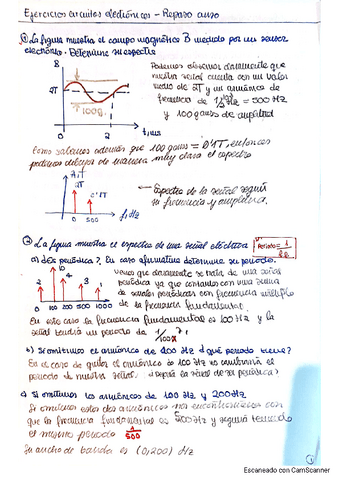 Ejercicios circuitos electrónicos - Repaso curso
① La figura muestra el campo magnético B medido por un sensor
electrónico. Determine su espectro
B
2T
100g.
0
2
t, ms
Podemos observar claramente que
nuestra señal cuenta con un valor
medio de 2T y un armónico de
frecuencia de = 500 Hz
y 100 gauss de amplitud
Como sabemos además que 100 gauss = 0'1T, entonces
podemos dibujar de manera muy clara el espectro
A, T
2T
0'1T
0
500
f, Hz
← Espectro de la señal según
su frecuencia y amplitud.
② La figura muestra el espectro de una señal eléctrica
Periodo = 1
a) ¿Es periódica?, En caso afirmativo determine su periodo.
2
10
4
3
1
0
100
200
500
1000
Vemos que claramente se trata de una señal
periódica ya que contamos con una suma
de señales periódicas con frecuencia múltiplo
de la frecuencia fundamental.
En este caso la frecuencia fundamental es 100 Hz y la
señal tendrá un periodo de 1/100
b) Si omitimos el armónico de 200 Hz ¿qué periodo tiene?
En el caso de quitar el armónico no cambiaría el
periodo de nuestra señal. ¿ la señal de ser periódica?
c) Si omitimos los armónicos de 100 Hz y 200 Hz
Si omitimos estos dos armónicos nos encontraremos con
que la frecuencia fundamental es 500 Hz y seguirá teniendo
el mismo periodo 1/500
Su ancho de banda es (0,200) Hz
1
Escaneado con CamScanner